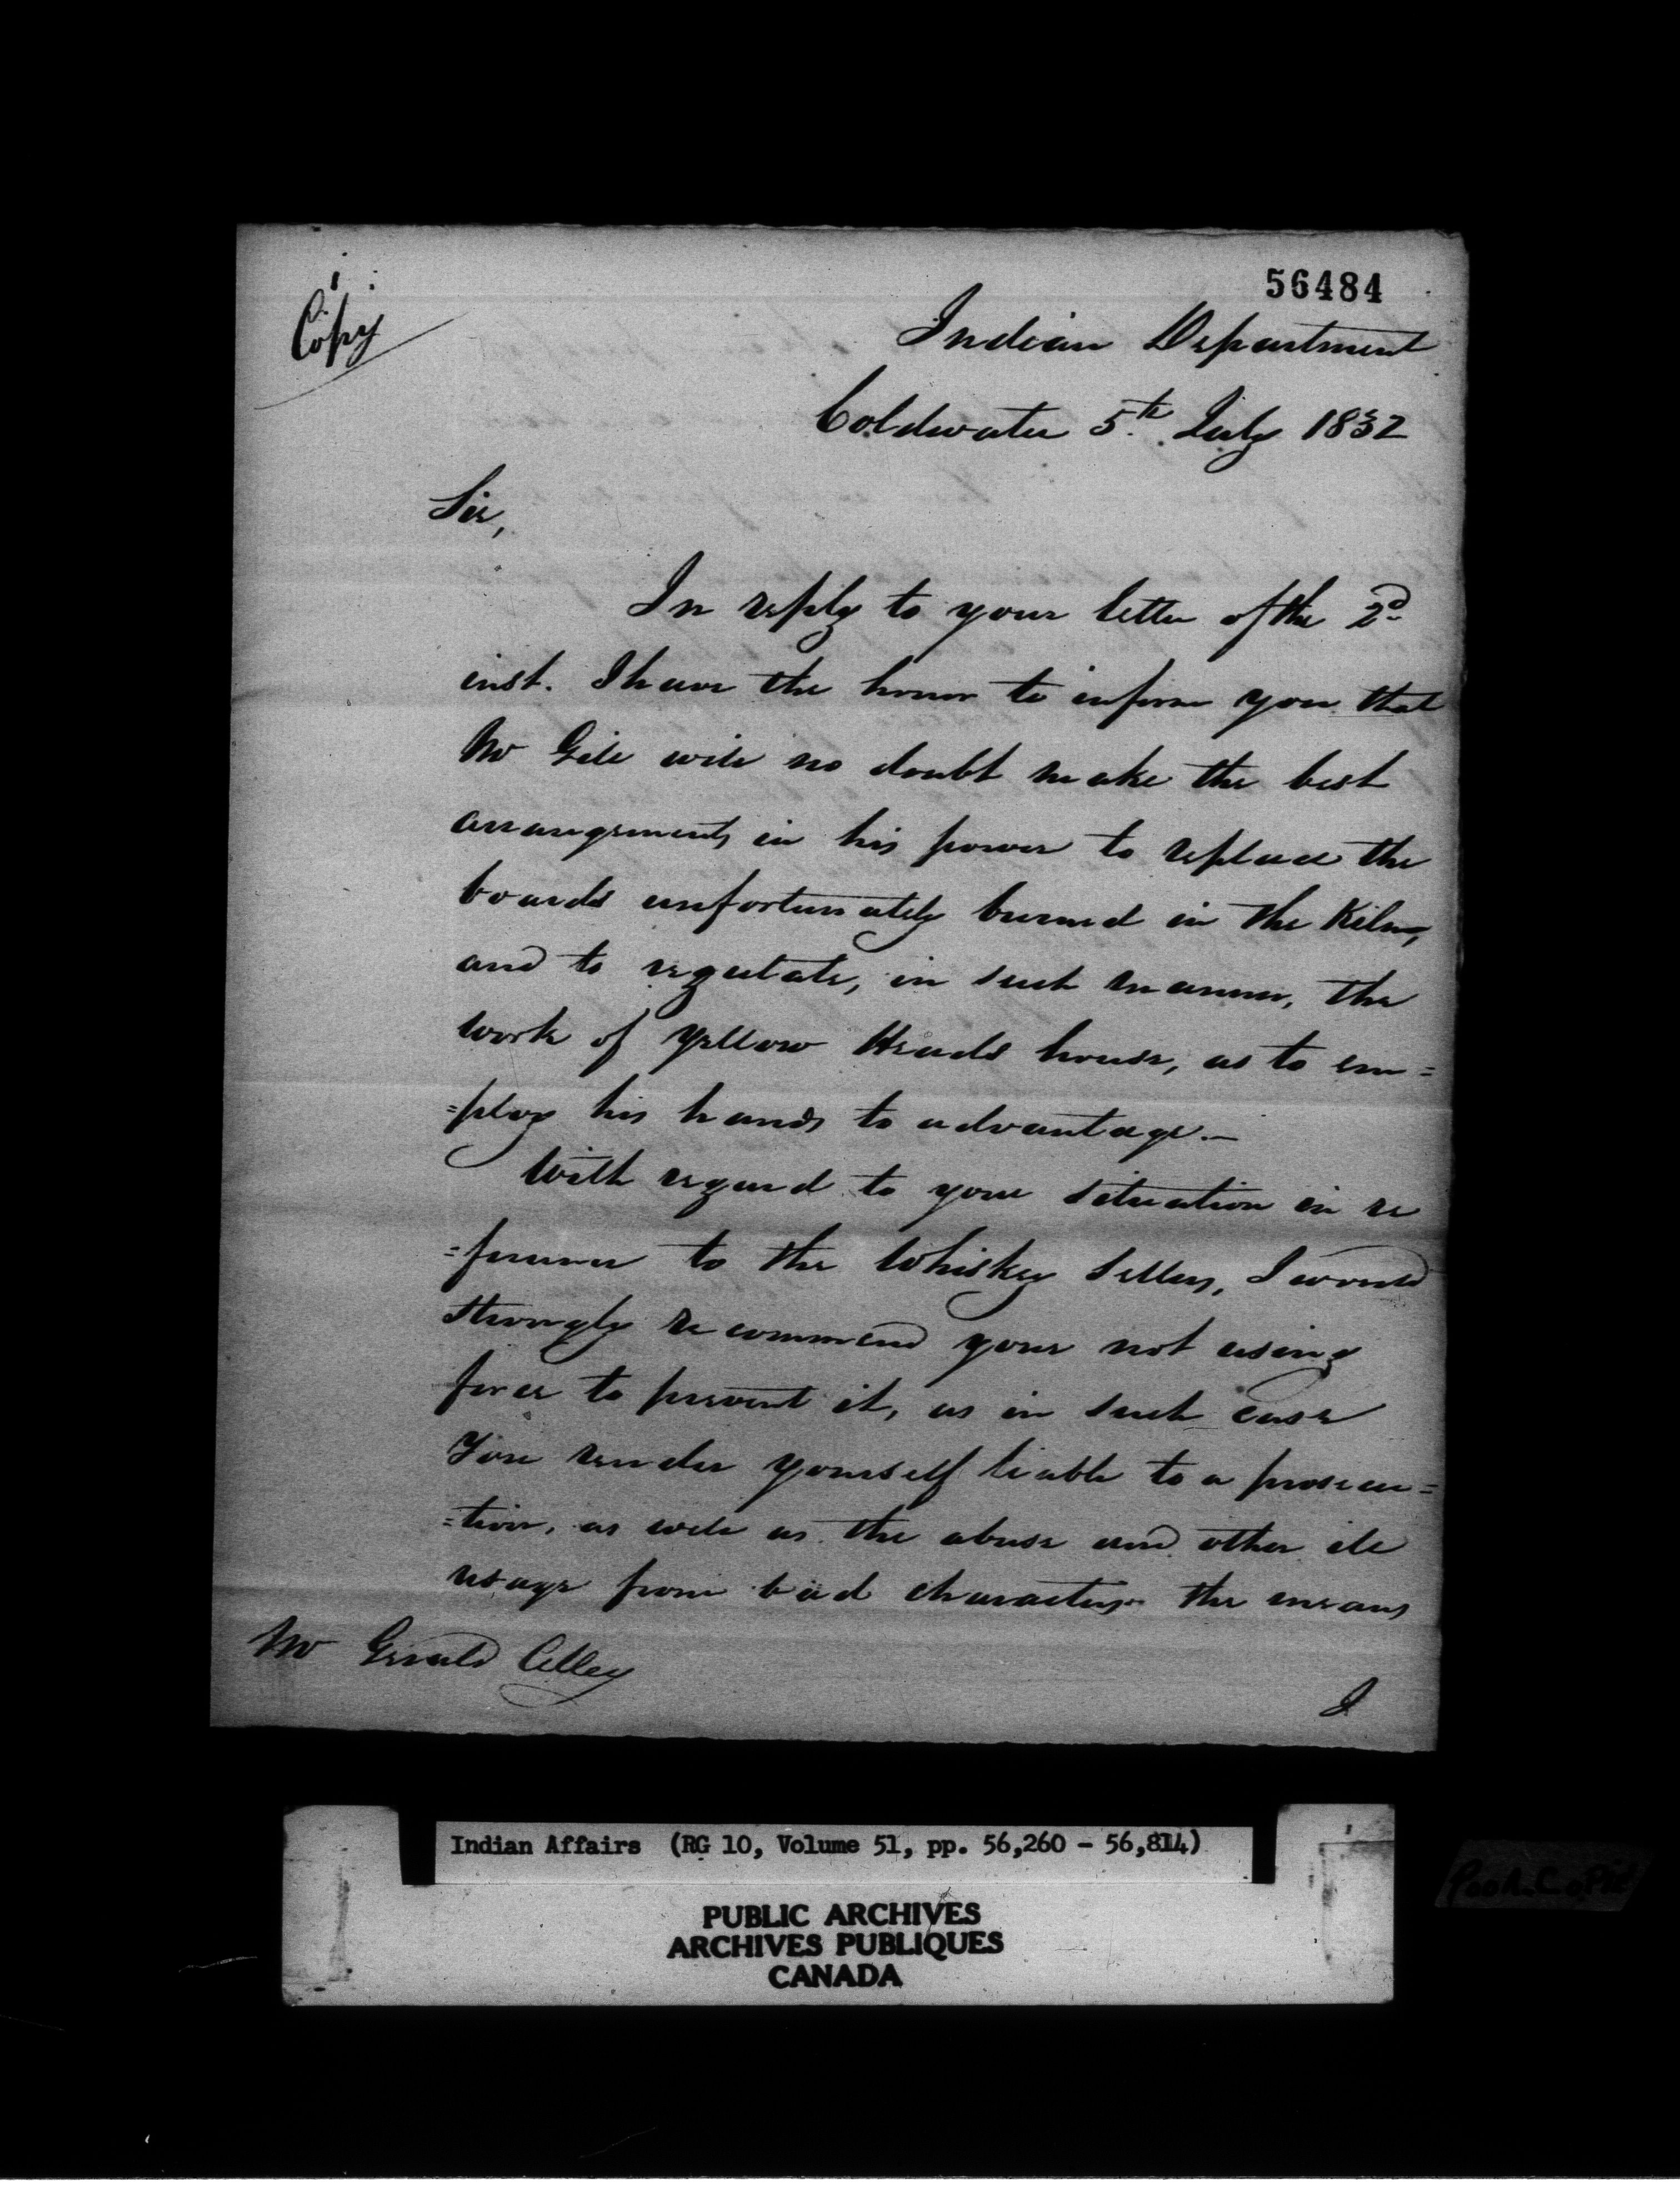 56484
Copy
Indian Department
Coldwater 5th July 1832
Sir,
In reply to your letter of the 2d
inst. I have the honor to inform you that
Mr Gill will no doubt make the best
arrangements in his power to replace the
boards unfortunately burned in the Kiln,
and to regulate, in such manner, the
work of Yellow Heads house, as to em=
=ploy his hands to advantage.—
With regard to your situation in re
=ference to the Whiskey Sellers, I would
strongly recommend your not using
force to prevent it, as in such case
You render yourself liable to a prosecu=
=tion, as well as the abuse and other ill
usage from bad characters. the means
Mr Gerald Alley
I
Indian Affairs (RG 10, Volume 51, pp. 56,260 - 56,814)
PUBLIC ARCHIVES
ARCHIVES PUBLIQUES
CANADA